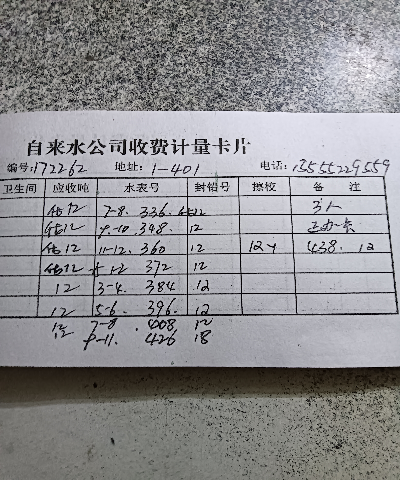 自来水公司收费计量卡片
编号:172262 地址: 1-401 电话:13555229559
卫生间 应收吨 水表号 封铅号 擦校 备 注
12 7-8. 336. 12 3人
12 9-10. 348. 12
12 11-12. 360 12 12 438. 12
12 1-2 372 12
12 3-4. 384 12
12 5-6. 396. 12
12 7-8 .408 12
9-11. 426 18